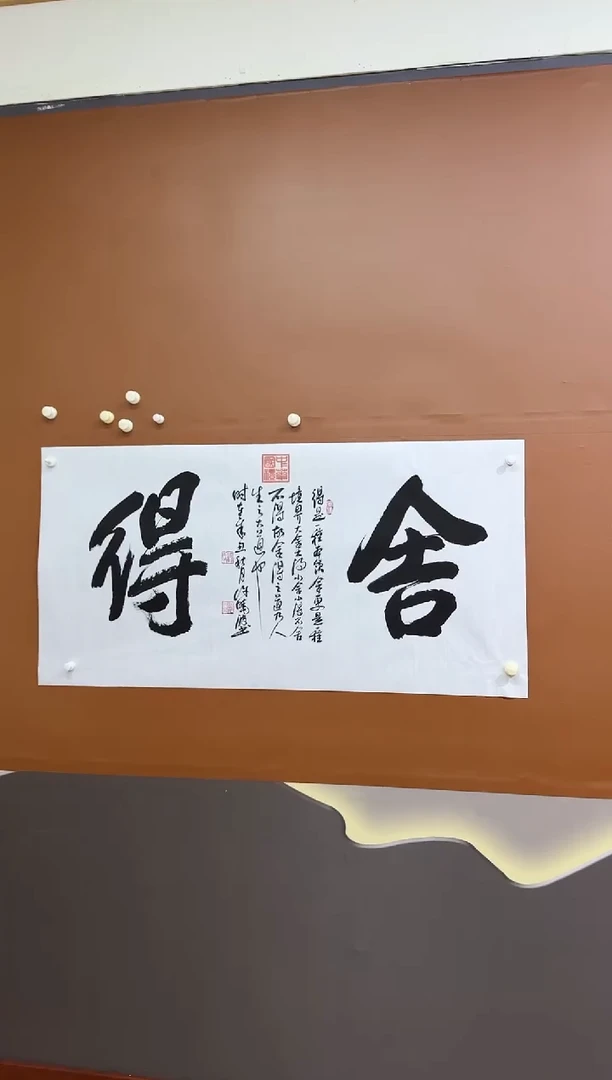 舍
得是一种本能舍更是一种
境界大舍大得小舍小得不舍
不得故舍得之道乃人
生之大智也
时在辛丑秋月
得